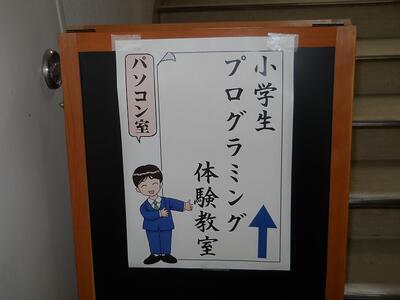 小学生
プログラミング
体験教室
パソコン室